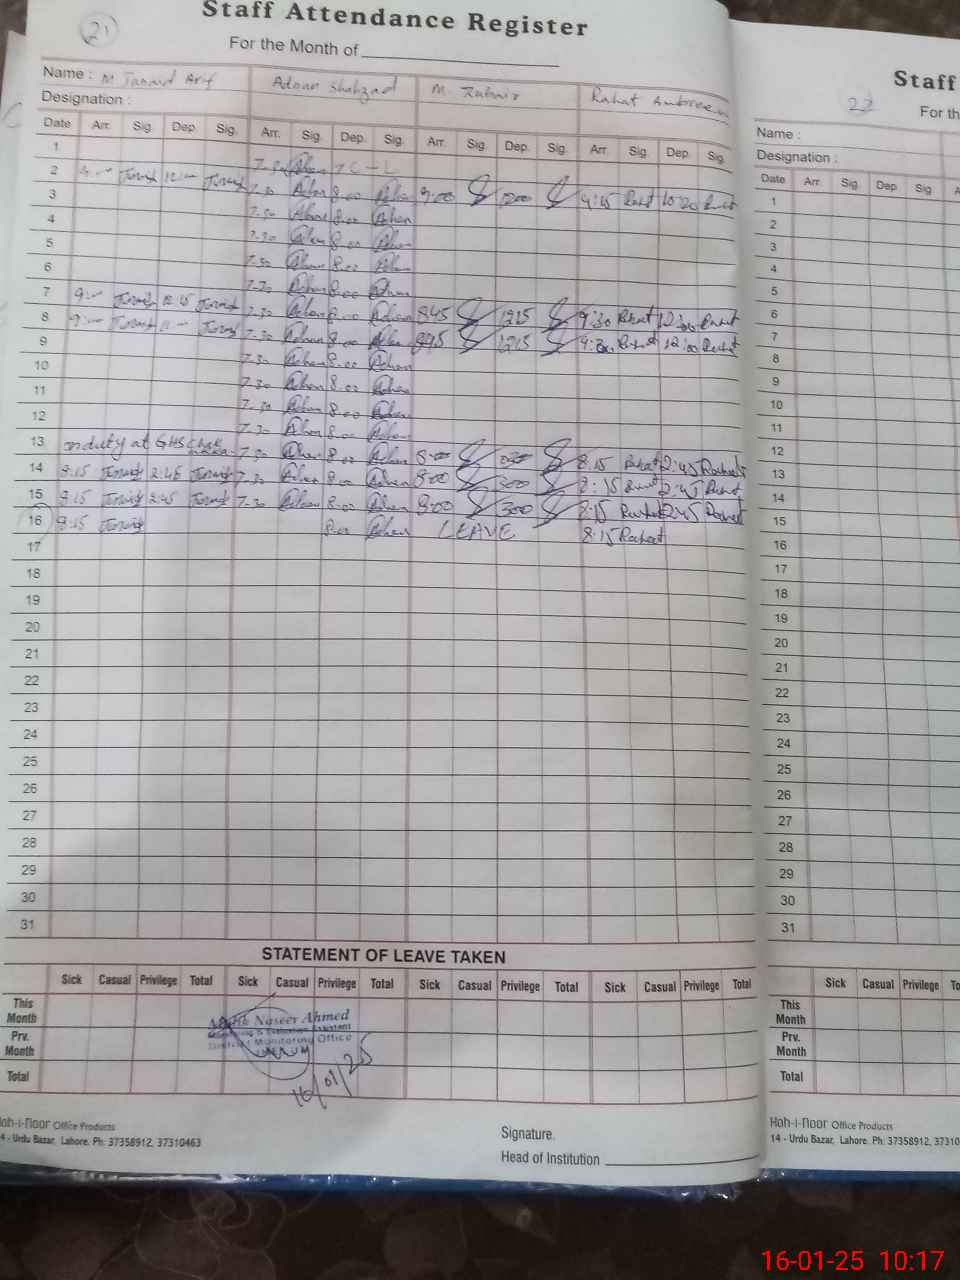 21
Staff Attendance Register
For the Month of
Name : M Arif Adnan Shahzad M. Zubair Rahat Ambreen
Designation :
Date Arr. Sig. Dep. Sig. Arr. Sig. Dep. Sig. Arr. Sig. Dep. Sig. Arr. Sig. Dep. Sig.
1
2 7-30 C-L
3 7-30 Adnan 8-00 Adnan 9:00 1200 9:45 Rahat 10:20 Rahat
4 7-30 Adnan 8-00 Adnan
5 7-30 Adnan 8-00 Adnan
6 7-30 Adnan 8-00 Adnan
7 7-30 Adnan 8-00 Adnan
8 9:- 12:15 7-30 Adnan 8-00 Adnan 845 1215 9:30 Rahat 12:00 Rahat
9 9:- 7-30 Adnan 8-00 Adnan 845 1215 9:30 Rahat 12:00 Rahat
10 7-30 Adnan 8-00 Adnan
11 7-30 Adnan 8-00 Adnan
12 7-30 Adnan 8-00 Adnan
13 7-30 Adnan 8-00 Adnan
14 onduty at GHS Chak 7-30 Adnan 8-00 Adnan 8:00 8:15 Rahat 2:45 Rahat
15 8:15 2:45 7-30 Adnan 8-00 Adnan 8:00 300 8:15 Rahat 2:45 Rahat
16 8:15 2:45 7-30 Adnan 8-00 Adnan 8:00 300 8:15 Rahat 2:45 Rahat
17 8:15 8:00 Adnan LEAVE 8:15 Rahat
18
19
20
21
22
23
24
25
26
27
28
29
30
31
STATEMENT OF LEAVE TAKEN
Sick Casual Privilege Total Sick Casual Privilege Total Sick Casual Privilege Total Sick Casual Privilege Total
This Month
Prv. Month
Total
Naseer Ahmed
Monitoring & Evaluation Assistant
District Monitoring Office
16/01/25
Koh-i-noor Office Products
14 - Urdu Bazar, Lahore. Ph: 37358912, 37310463
Signature.
Head of Institution
22
Staff
For th
Name :
Designation :
Date Arr. Sig. Dep. Sig. A
1
2
3
4
5
6
7
8
9
10
11
12
13
14
15
16
17
18
19
20
21
22
23
24
25
26
27
28
29
30
31
Sick Casual Privilege To
This Month
Prv. Month
Total
Koh-i-noor Office Products
14 - Urdu Bazar, Lahore. Ph: 37358912, 3731
16-01-25 10:17